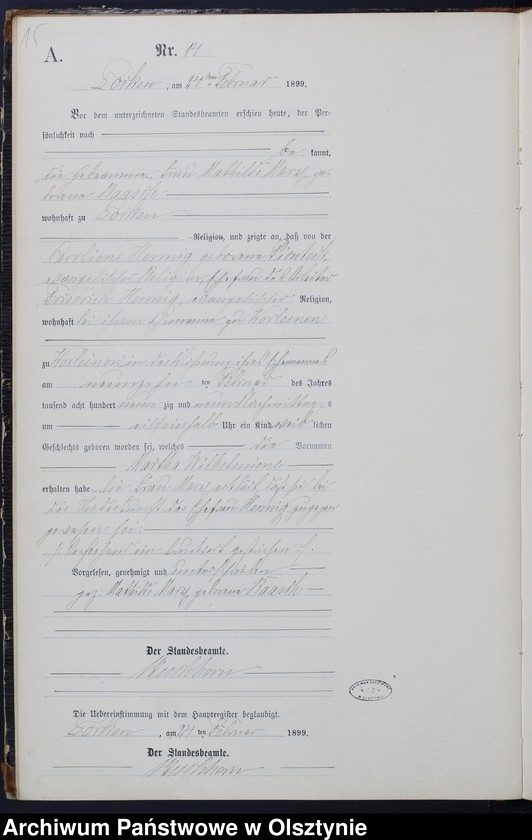 15
A.
Nr. 14
Dorken, am 24ten Februar 1899.
Vor dem unterzeichneten Standesbeamten erschien heute, der Per-
sönlichkeit nach
be kannt,
die Hebamme, Frau Mathilde Marx, ge-
borene Raasch
wohnhaft zu Dorken
Religion, und zeigte an, daß von der
Caroline Hennig geborene
evangelischer Religion, Ehefrau des Arbeiter
Friedrich Hennig, evangelischer Religion,
wohnhaft bei ihrem Ehemanne zu Worleinen
zu Worleinen in der Wohnung ihres Ehemannes
am neunzehn ten Februar des Jahres
tausend acht hundert neun zig und neun Nachmittags
um Uhr ein Kind weib lichen
Geschlechts geboren worden sei, welches die Vornamen
Martha Wilhelmiene
erhalten habe. Die Frau Marx erklärt, daß sie bei
der Niederkunft der Ehefrau Hennig zugegen
gewesen sei.
Vorstehend ein Druckwort gestrichen.
Vorgelesen, genehmigt und unterschrieben
gez: Mathilde Marx geborene Raasch
Der Standesbeamte.
Buchhorn
Die Uebereinstimmung mit dem Hauptregister beglaubigt.
Dorken, am 24 ten Februar 1899.
Der Standesbeamte.
Buchhorn
Archiwum Państwowe w Olsztynie